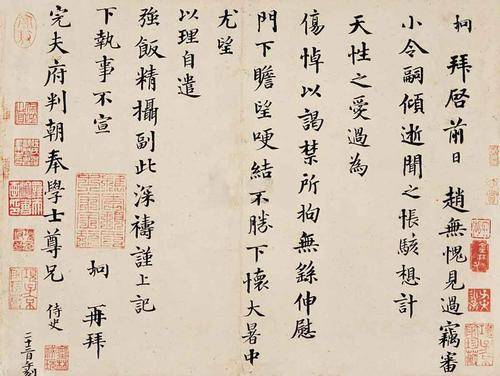 拜啓前日趙無愧見過竊審
小令嗣傾逝聞之悵駭想計
天性之愛過為
傷悼以謁禁所拘無繇伸慰
門下瞻望哽結不勝下懷大暑中
尤望
以理自遣
強飯精攝副此深禱謹上記
下執事不宣 再拜
完夫府判朝奉學士尊兄 侍史